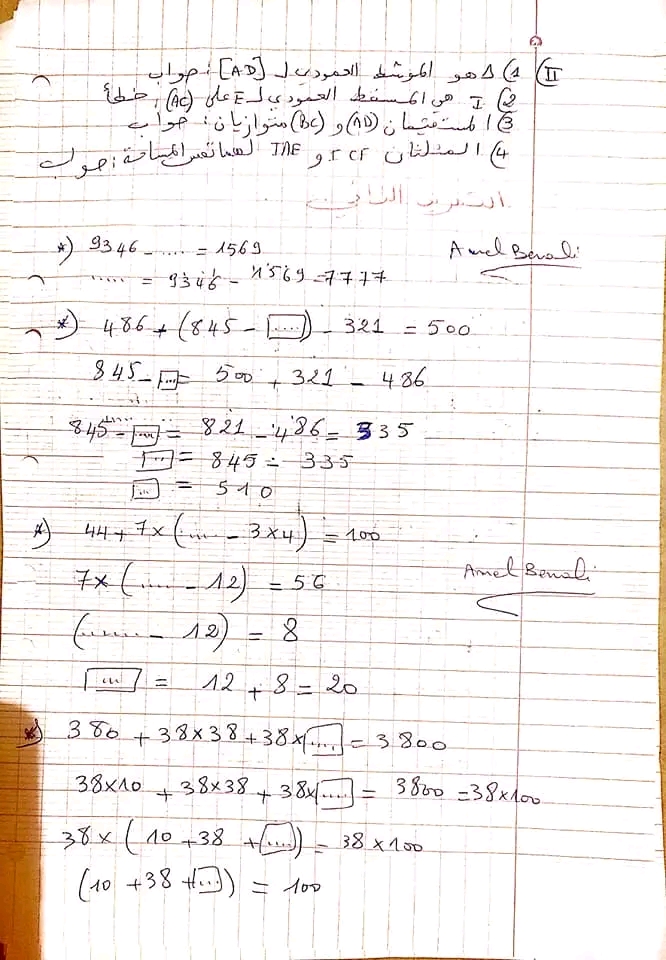 II) 1) Δ هو الموسط العمودي لـ [AD] : صواب
2) I هي المسقط العمودي لـ E على (AC) : خطأ
3) المستقيمان (AD) و (BC) متوازيان : صواب
4) المثلثان و IAE لهما نفس المساحة : صواب
التمرين الثاني
*) 9346 - .... = 1569
Amel Benali
..... = 9346 - 1569 = 7777
*) 486 + (845 - [....]) - 321 = 500
845 - [...] = 500 + 321 - 486
845 - [....] = 821 - 486 = 335
[...] = 845 - 335
[...] = 510
*) 44 + 7 x (.... - 3 x 4) = 100
7 x (..... - 12) = 56
Amel Benali
(...... - 12) = 8
[...] = 12 + 8 = 20
*) 380 + 38 x 38 + 38 x [....] = 3800
38 x 10 + 38 x 38 + 38 x [....] = 3800 = 38 x 100
38 x (10 + 38 + [....]) = 38 x 100
(10 + 38 + [...]) = 100